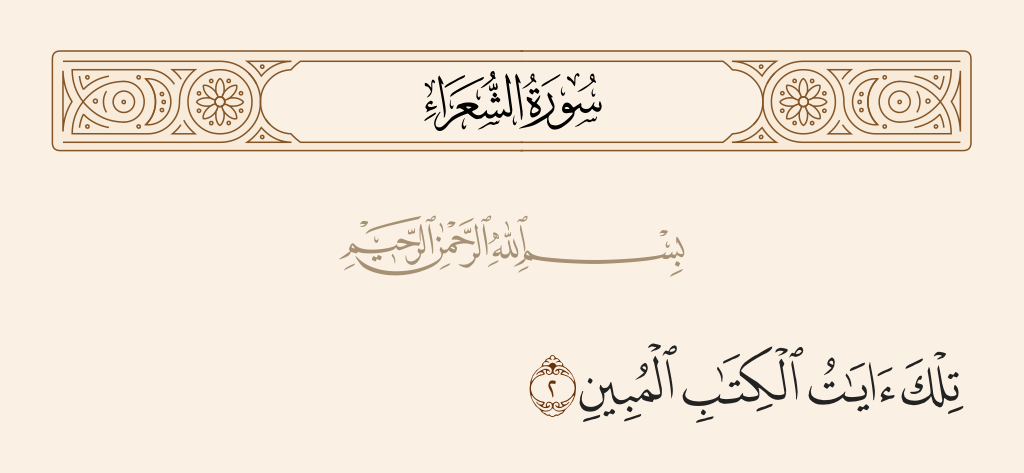 سُورَةُ الشُّعَرَاءِ
بِسْمِ ٱللَّهِ ٱلرَّحْمَٰنِ ٱلرَّحِيمِ
تِلْكَ ءَايَٰتُ ٱلْكِتَٰبِ ٱلْمُبِينِ ٢